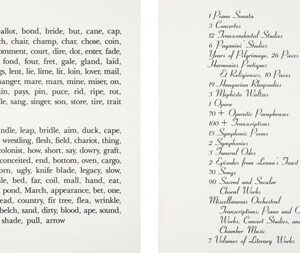 pallbol, bond, bride, but, cane, cap,
ch, chair, champ, char, chose, coin,
omment, court, dire, dot, enter, fade,
, fond, four, fret, gale, gland, laid,
gs, lent, lie, lime, lit, loin, lover, mail,
hanger, mare, mars, mine, miser, on,
in, pays, pin, puce, rid, ripe, rot,
le, sang, singer, son, store, tire, trait
ndle, leap, bridle, aim, duck, cape,
wrestling, flesh, field, chariot, thing,
colonist, how, short, say, dowry, graft,
conceited, end, bottom, oven, cargo,
orn, ugly, knife blade, legacy, slow,
ile, bed, far, coil, mall, hand, eat,
pond, March, appearance, bet, one,
ead, country, fir tree, flea, wrinkle,
belch, sand, dirty, blood, ape, sound,
shade, pull, arrow
1 Piano Sonata
3 Concertos
12 Transcendental Studies
6 Paganini Studies
Years of Pilgrimage, 26 Pieces
Harmonies Poetiques
Et Religieuses, 10 Pieces
19 Hungarian Rhapsodies
3 Mephisto Waltzes
1 Opera
70 + Operatic Paraphrases
100 + Transcriptions
13 Symphonic Poems
2 Symphonies
3 Funeral Odes
2 Episodes from Lenau's Faust
70 Songs
90 Sacred and Secular
Choral Works
Miscellaneous Orchestral
Transcriptions, Piano and O
Works, Concert Studies, and
Chamber Music
7 Volumes of Literary Works